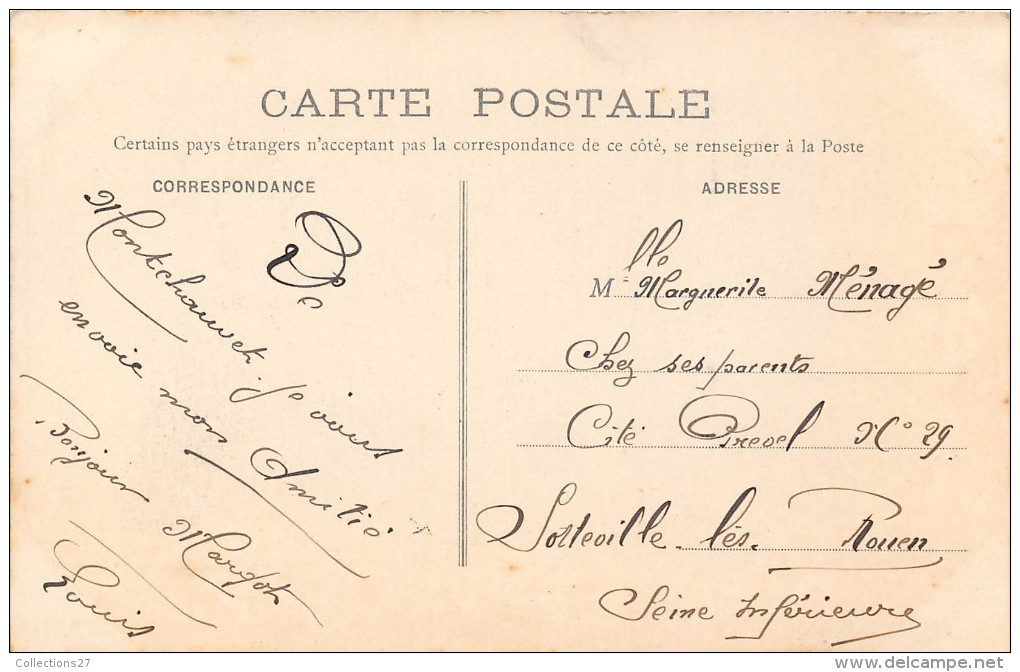 CARTE POSTALE
Certains pays étrangers n'acceptant pas la correspondance de ce côté, se renseigner à la Poste
CORRESPONDANCE
De
Montchauvet. je vous
envoie mon Amitié
Bonjour Margot
Louis
ADRESSE
Mlle Marguerite Ménagé
Chez ses parents
Cité Prevel N° 29.
Sotteville-lès-Rouen
Seine Inférieure
Collections27
www.delcampe.net